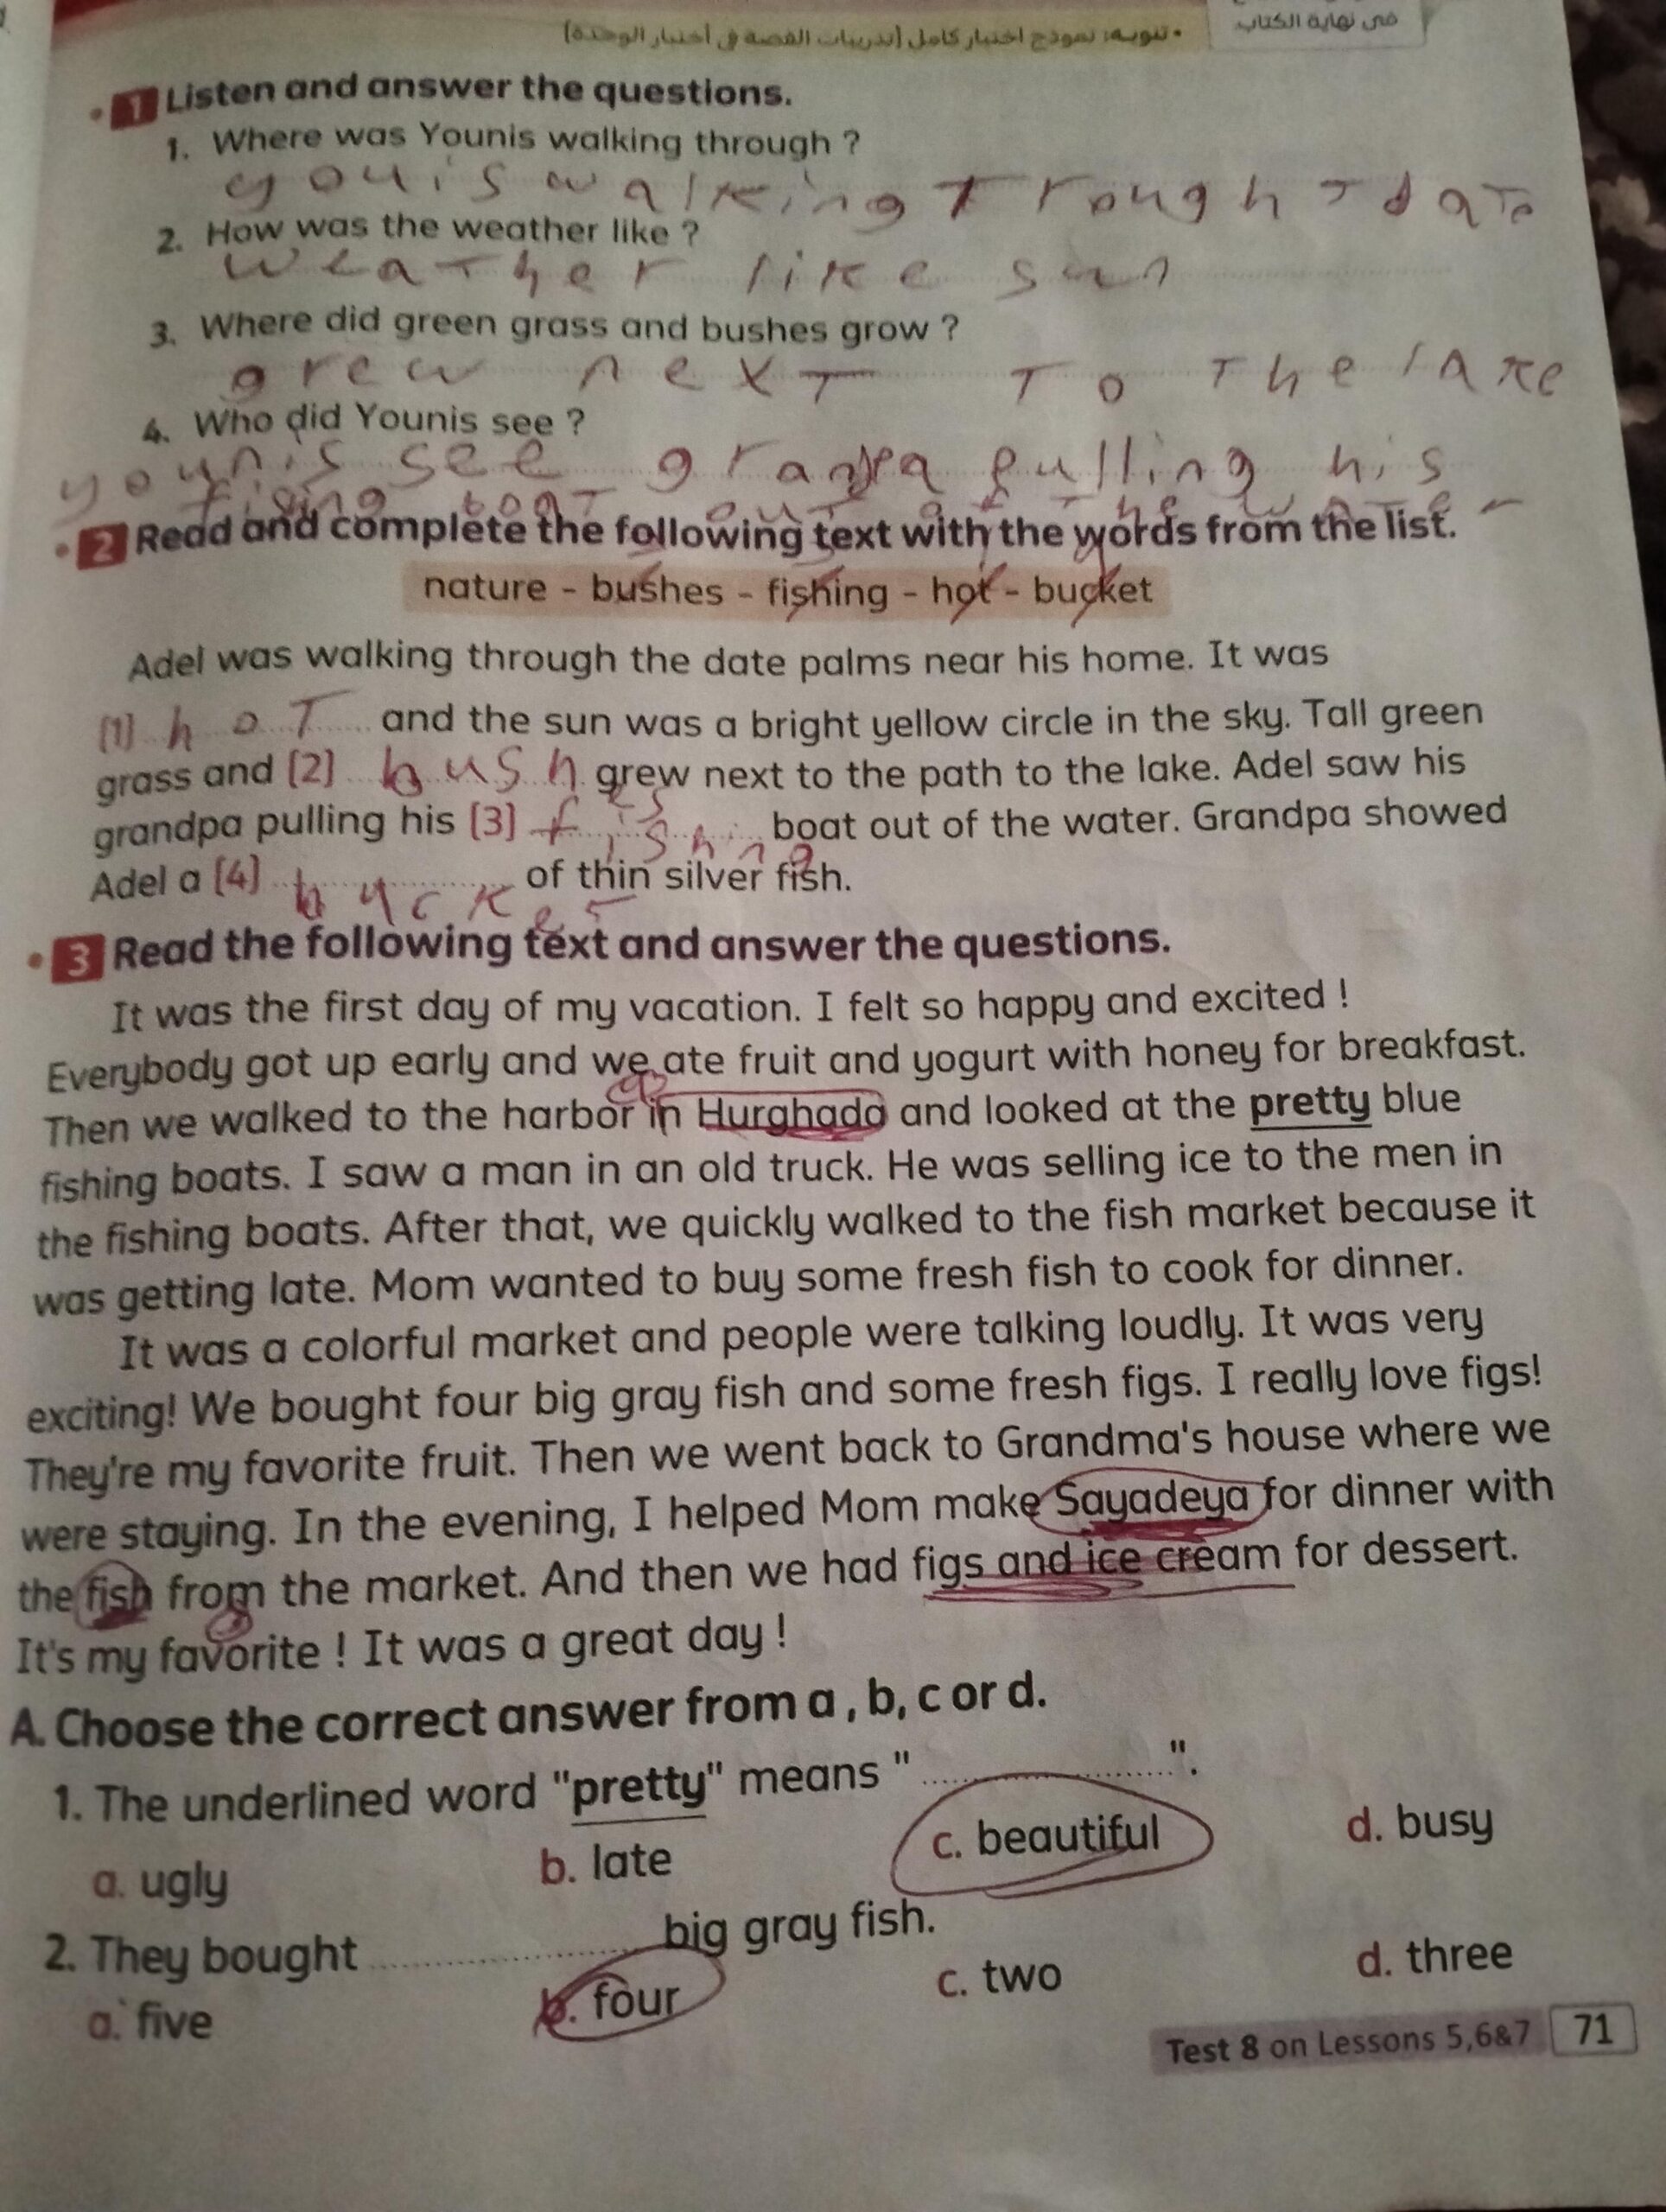 في نهاية الكتاب
• تنويه: نموذج اختبار كامل (تدريبات القصة في اختبار الوحدة)
• 1 Listen and answer the questions.
1. Where was Younis walking through ?
youis walking Trough date
2. How was the weather like ?
weaTher like sun
3. Where did green grass and bushes grow ?
grew nexT To The lake
4. Who did Younis see ?
younis see granpa pulling his
fising boaT ouT of The waTer
• 2 Read and complete the following text with the words from the list.
nature - bushes - fishing - hot - bucket
Adel was walking through the date palms near his home. It was
(1) hoT and the sun was a bright yellow circle in the sky. Tall green
grass and (2) bushes grew next to the path to the lake. Adel saw his
grandpa pulling his (3) fishing boat out of the water. Grandpa showed
Adel a (4) buckeT of thin silver fish.
• 3 Read the following text and answer the questions.
It was the first day of my vacation. I felt so happy and excited !
Everybody got up early and we ate fruit and yogurt with honey for breakfast.
Then we walked to the harbor in Hurghada and looked at the pretty blue
fishing boats. I saw a man in an old truck. He was selling ice to the men in
the fishing boats. After that, we quickly walked to the fish market because it
was getting late. Mom wanted to buy some fresh fish to cook for dinner.
It was a colorful market and people were talking loudly. It was very
exciting! We bought four big gray fish and some fresh figs. I really love figs!
They're my favorite fruit. Then we went back to Grandma's house where we
were staying. In the evening, I helped Mom make Sayadeya for dinner with
the fish from the market. And then we had figs and ice cream for dessert.
It's my favorite ! It was a great day !
A. Choose the correct answer from a , b, c or d.
1. The underlined word "pretty" means " .................... ".
a. ugly b. late c. beautiful d. busy
2. They bought .................... big gray fish.
a. five b. four c. two d. three
Test 8 on Lessons 5,6&7 71